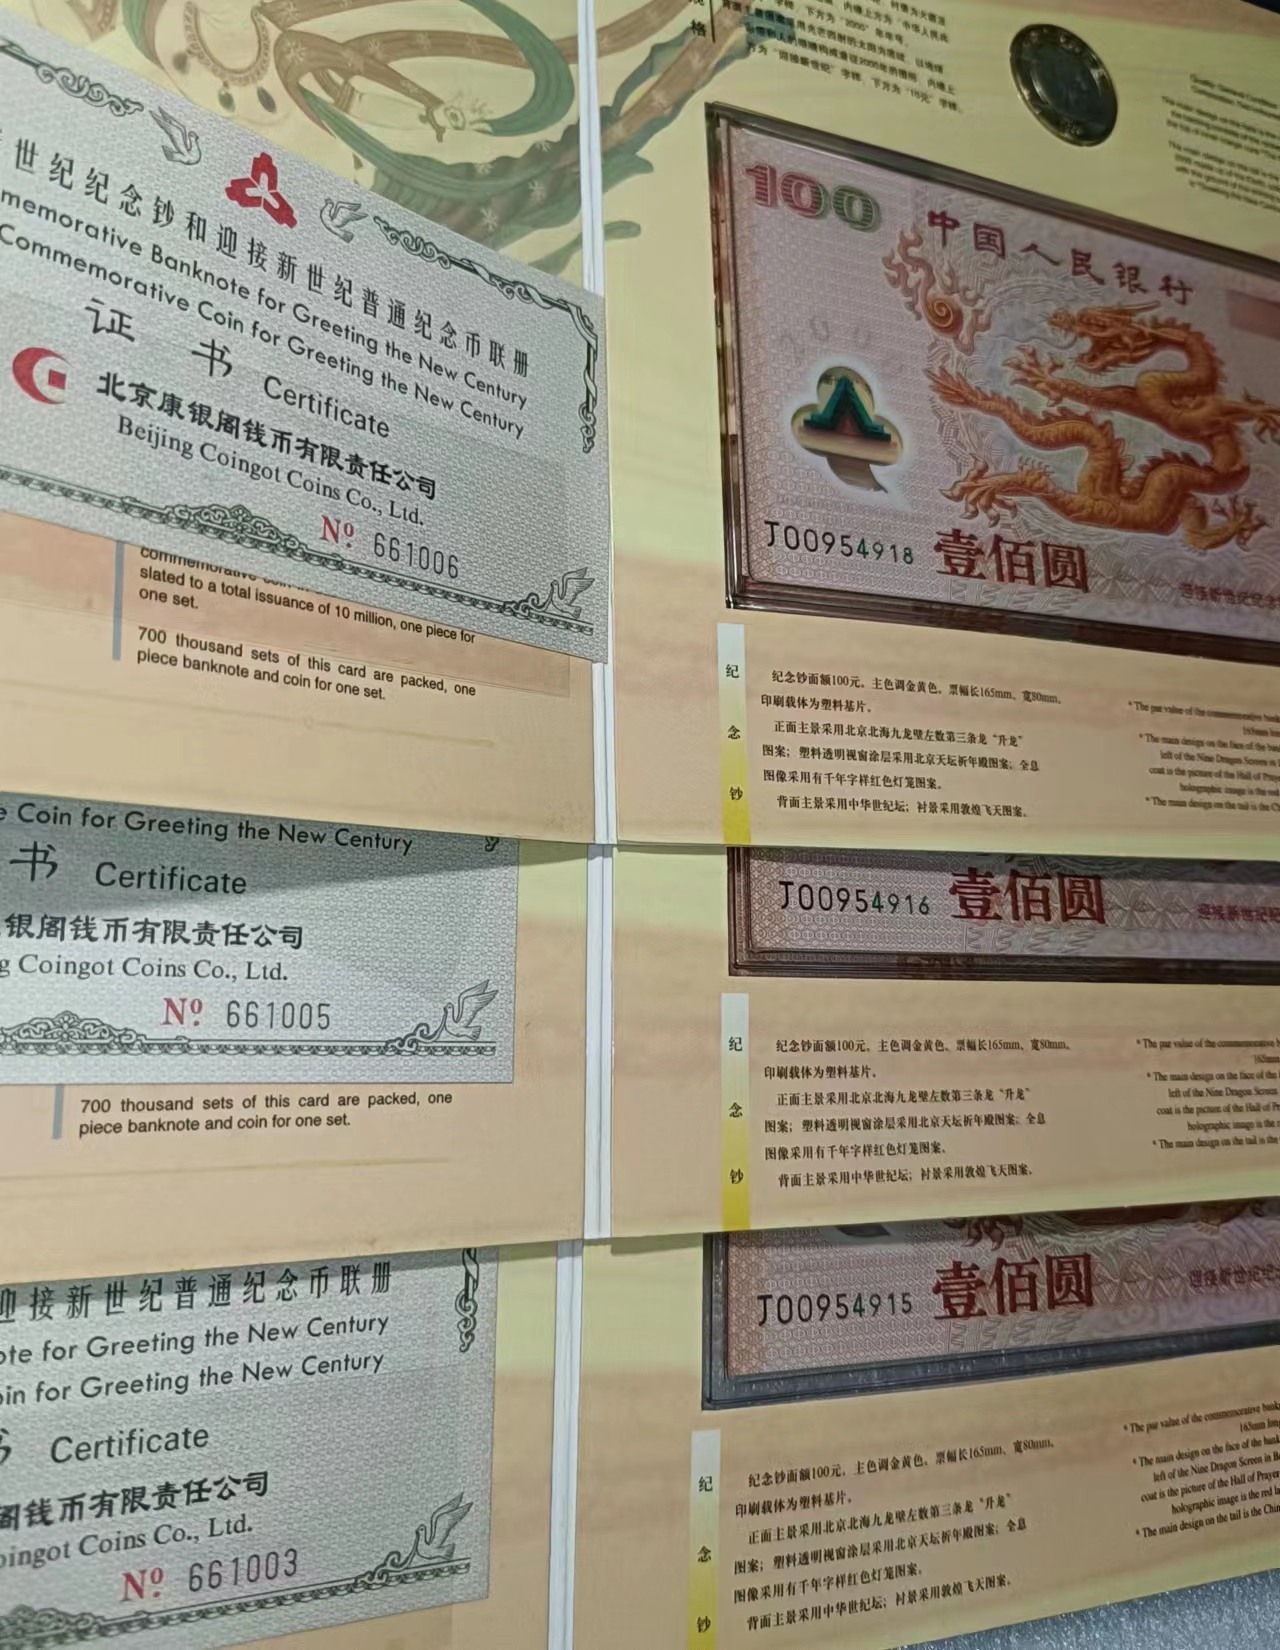 世纪纪念钞和迎接新世纪普通纪念币联册
memorative Banknote for Greeting the New Century
Commemorative Coin for Greeting the New Century
证书 Certificate
北京康银阁钱币有限责任公司
Beijing Coingot Coins Co., Ltd.
Nº 661006
slated to a total issuance of 10 million, one piece for
one set.
700 thousand sets of this card are packed, one
piece banknote and coin for one set.
格
100
中国人民银行
J00954918 壹佰圆
迎接新世纪纪念
纪念钞
纪念钞面额100元。主色调金黄色。票幅长165mm、宽80mm。
印刷载体为塑料基片。
正面主景采用北京北海九龙壁左数第三条龙“升龙”
图案；塑料透明视窗涂层采用北京天坛祈年殿图案；全息
图像采用有千年字样红色灯笼图案。
背面主景采用中华世纪坛；衬景采用敦煌飞天图案。
* The par value of the commemorative
* The main design on the face of the
left of the Nine Dragon Screen in
coat is the picture of the Hall of Prayer
holographic image is the red
* The main design on the tail is the
e Coin for Greeting the New Century
书 Certificate
银阁钱币有限责任公司
g Coingot Coins Co., Ltd.
Nº 661005
700 thousand sets of this card are packed, one
piece banknote and coin for one set.
J00954916 壹佰圆
迎接新世纪
纪念钞
纪念钞面额100元。主色调金黄色。票幅长165mm、宽80mm。
印刷载体为塑料基片。
正面主景采用北京北海九龙壁左数第三条龙“升龙”
图案；塑料透明视窗涂层采用北京天坛祈年殿图案；全息
图像采用有千年字样红色灯笼图案。
背面主景采用中华世纪坛；衬景采用敦煌飞天图案。
* The par value of the commemorative
165mm
* The main design on the face of the
left of the Nine Dragon Screen in
coat is the picture of the Hall of
holographic image is the
* The main design on the tail is the
迎接新世纪普通纪念币联册
ote for Greeting the New Century
oin for Greeting the New Century
Certificate
阁钱币有限责任公司
oingot Coins Co., Ltd.
Nº 661003
J00954915 壹佰圆
迎接新世纪纪
纪念钞
纪念钞面额100元。主色调金黄色。票幅长165mm、宽80mm。
印刷载体为塑料基片。
正面主景采用北京北海九龙壁左数第三条龙“升龙”
图案；塑料透明视窗涂层采用北京天坛祈年殿图案；全息
图像采用有千年字样红色灯笼图案。
背面主景采用中华世纪坛；衬景采用敦煌飞天图案。
* The par value of the commemorative
165mm
* The main design on the face of the
left of the Nine Dragon Screen in
coat is the picture of the Hall of Prayer
holographic image is the red
* The main design on the tail is the